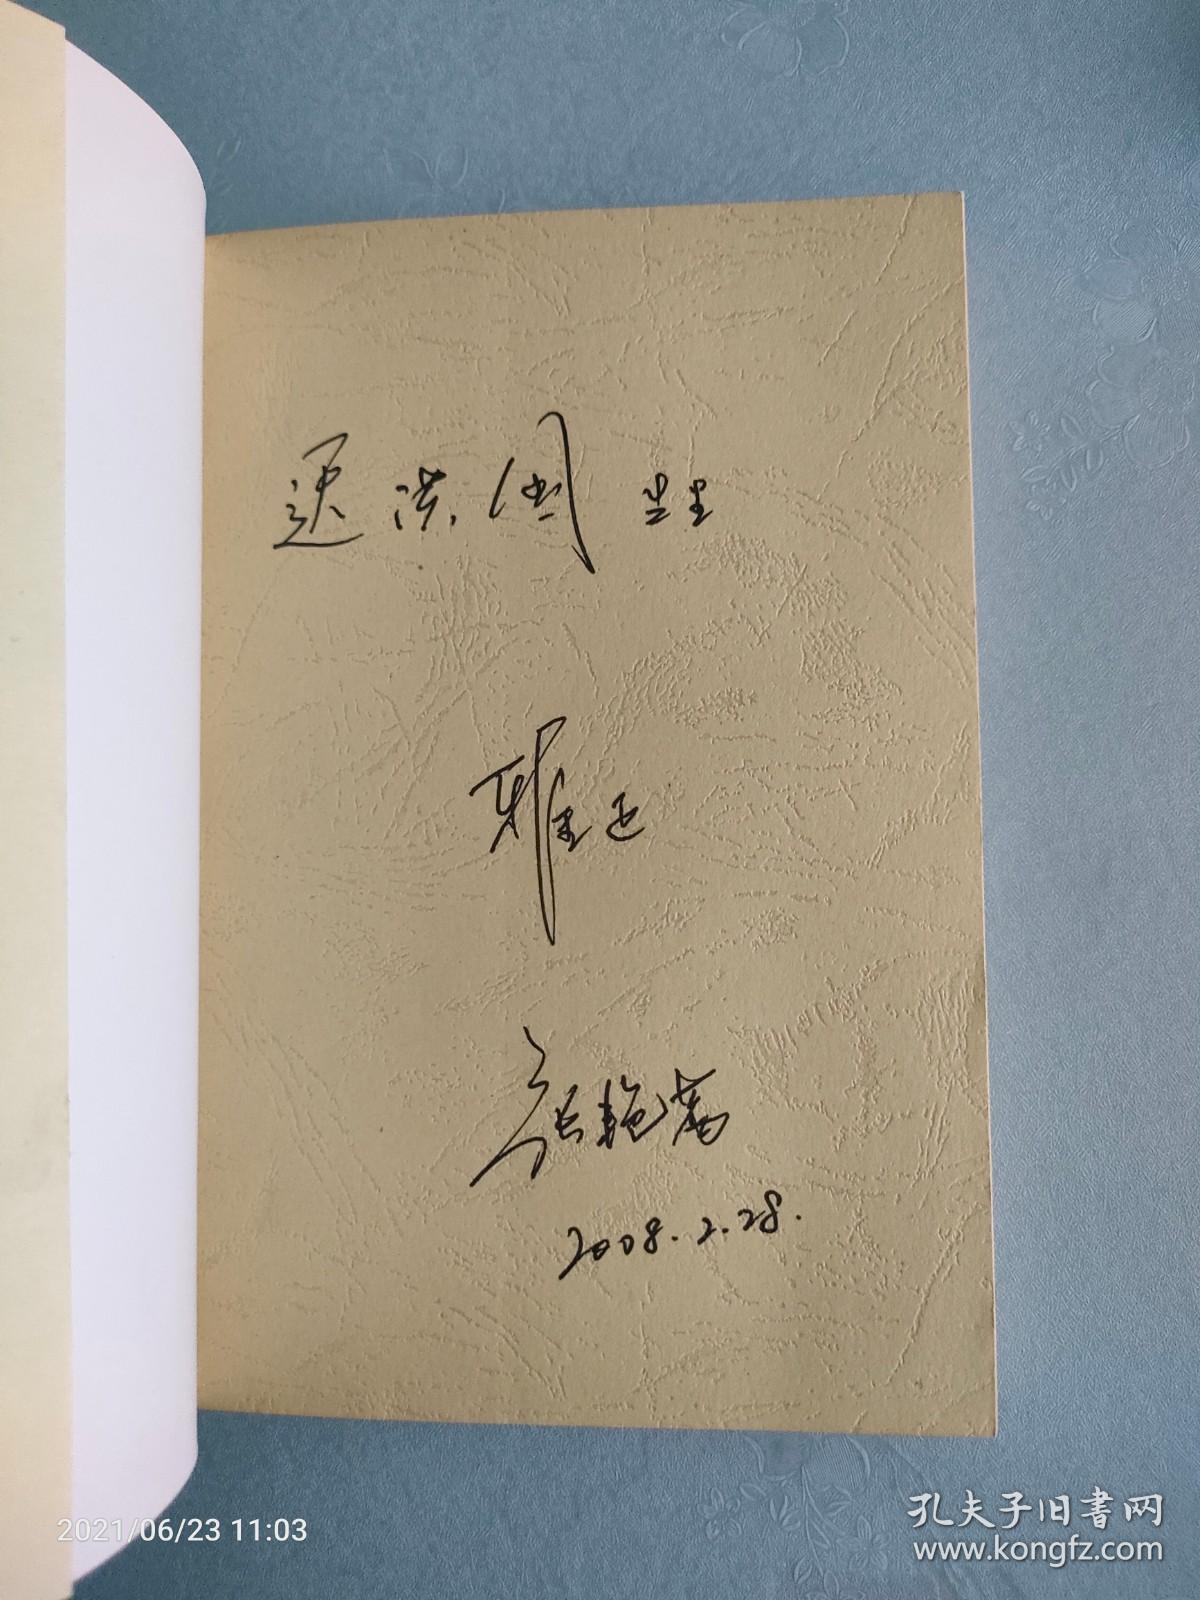 迟洪国先生
雅正
张艳茜
2008.2.28.
2021/06/23 11:03
孔夫子旧书网
www.kongfz.com